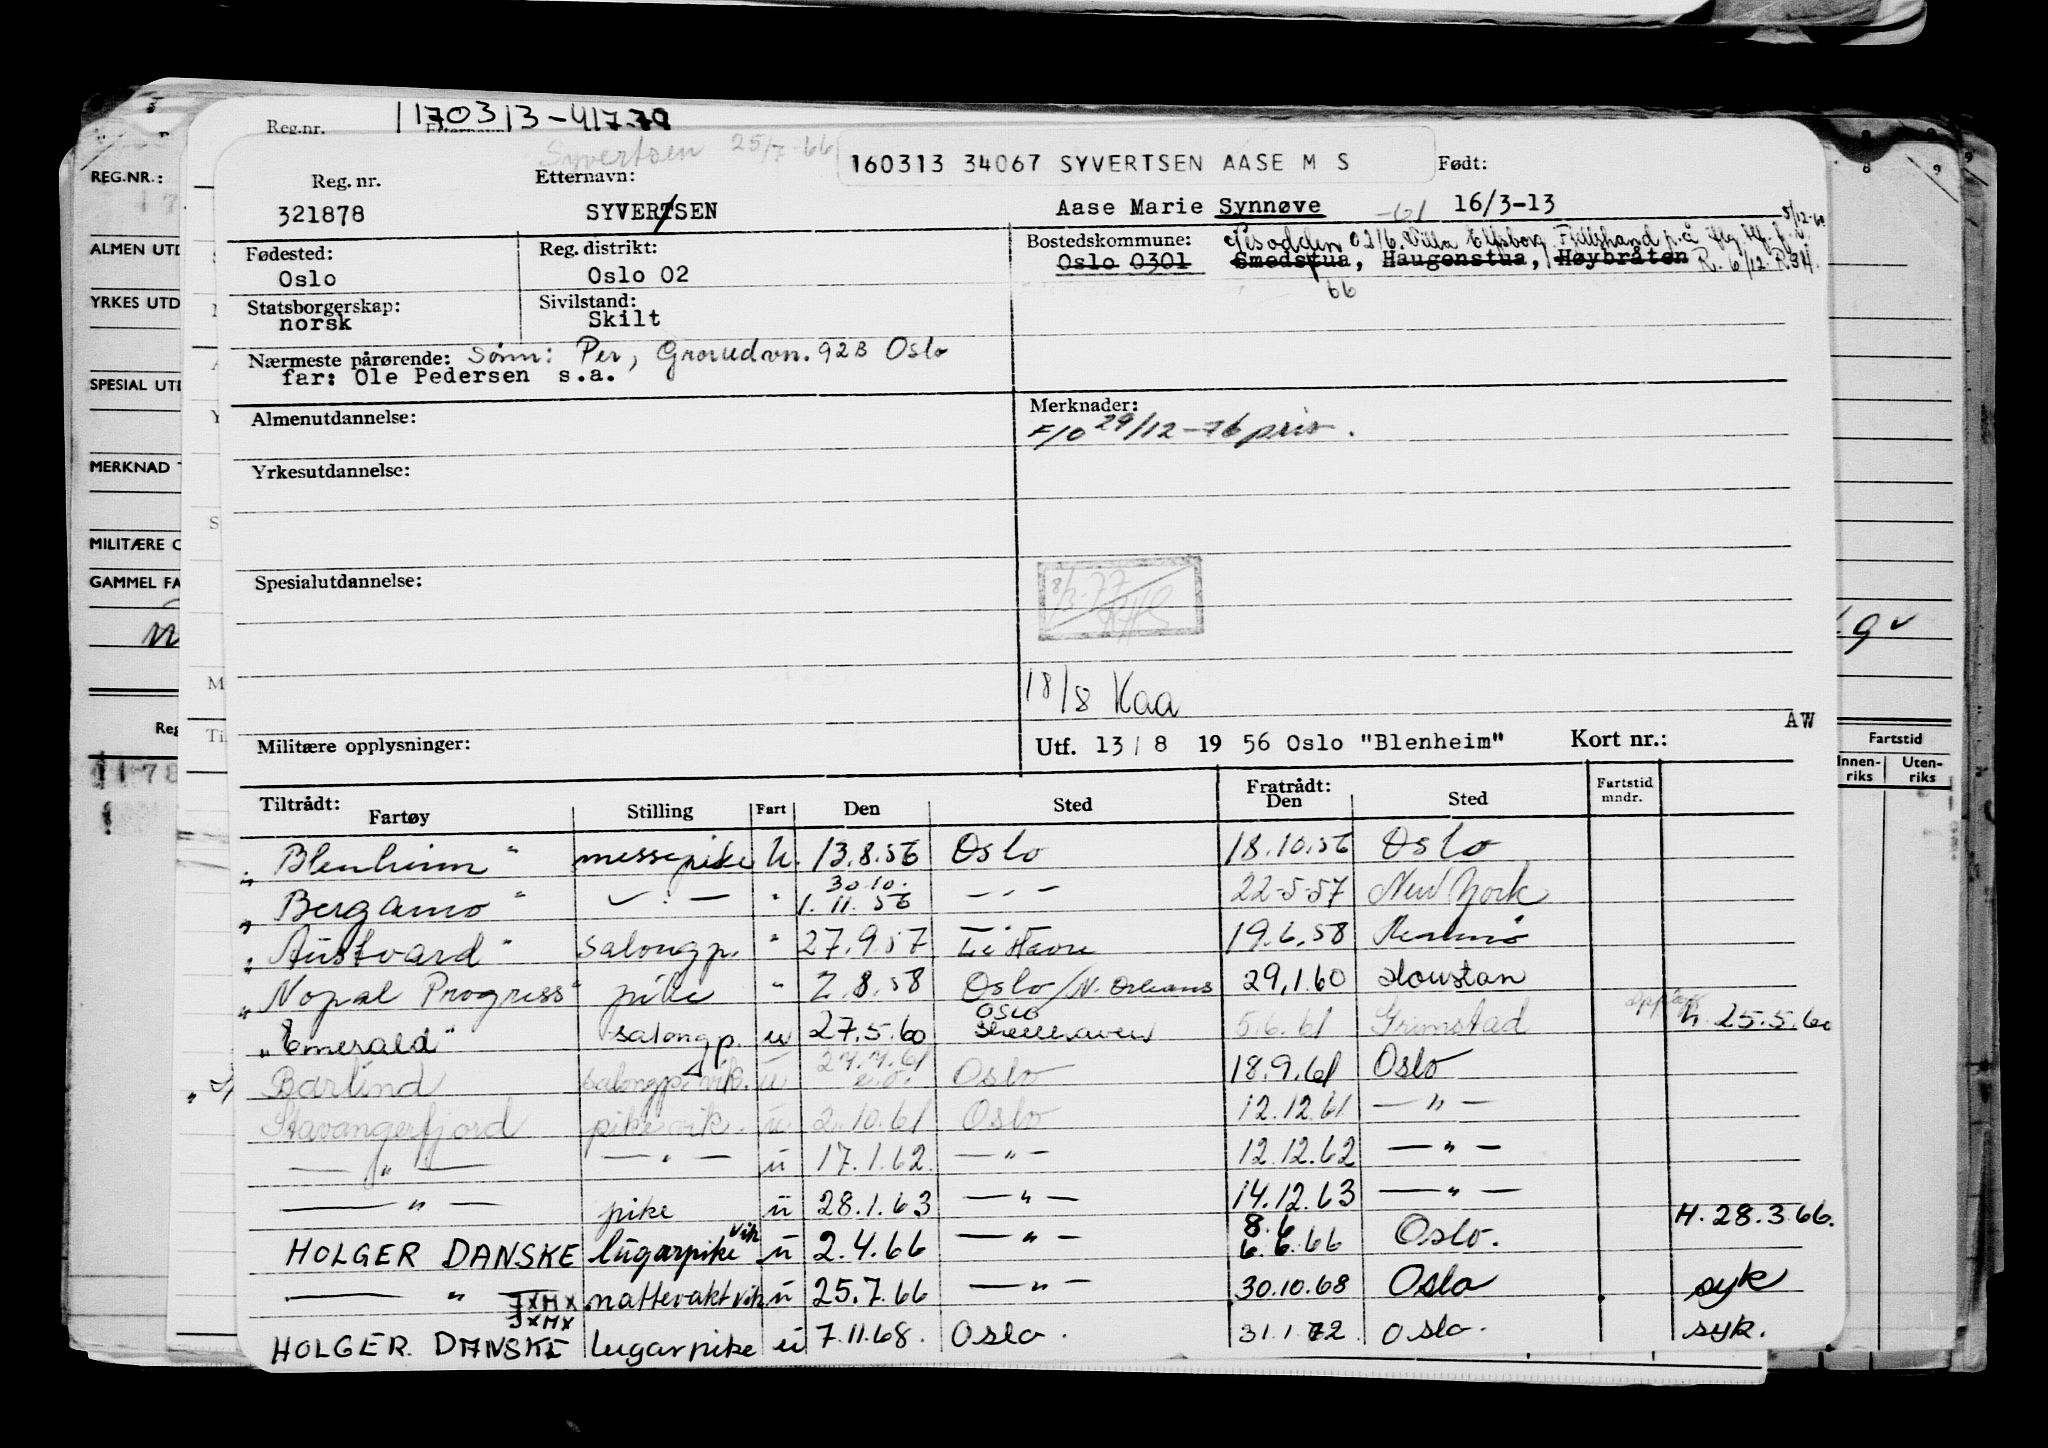 Reg.nr. 170313-41779
Syvertsen 25/7-66
160313 34067 SYVERTSEN AASE M S
Reg. nr. Etternavn: Født:
321878 SYVERTSEN Aase Marie Synnøve -61 16/3-13
Fødested: Reg. distrikt: Bostedskommune: Nesodden 0216. Villa Elfsborg Fjellstrand p.å
Oslo Oslo 02 Oslo 0301 Smedstua, Haugenstua, Høybråten
66
Statsborgerskap: Sivilstand:
norsk Skilt
Nærmeste pårørende: Sønn: Per, Grorudvn. 92B Oslo
far: Ole Pedersen s.a.
Almenutdannelse: Merknader:
F/O 29/12-76 priv.
Yrkesutdannelse:
Spesialutdannelse:
8/3-77
18/8 Kaa
AW
Militære opplysninger: Utf. 13/8 1956 Oslo "Blenheim" Kort nr.:
Tiltrådt: Fratrådt: Fartstid
Fartøy Stilling Fart Den Sted Den Sted mndr.
"Blenheim" messepike U. 13.8.56 Oslo 18.10.56 Oslo
30.10.
"Bergamo" — " — " 1.11.56 — " — 22-5-57 New York
"Austvard" salongp. " 27.9.57 Le Havre 19.6.58
"Nopal Progress" pike " 2.8.58 Oslo/N. Orleans 29.1.60 Houston
Oslo
"Emerald" salongp. u 27.5.60 Shellhaven 5.6.61 Grimstad h. 25.5.60
27.7.61
Barlind salongp. vik. u Oslo 18.9.61 Oslo
Stavangerfjord pike vik. u 2.10.61 Oslo 12.12.61 — " —
— " — — " — u 17.1.62 — " — 12.12.62 — " —
— " — pike u 28.1.63 — " — 14.12.63 — " —
8.6 H. 28.3.66.
HOLGER DANSKE lugarpike vik u 2.4.66 — " — 6.6.66 Oslo.
— " — nattevakt vik u 25.7.66 — " — 30.10.68 Oslo syk
HOLGER DANSKE lugarpike u 7.11.68. Oslo. 31.1.72 Oslo. syk.
REG.NR.:
ALMEN UTD
YRKES UTD
SPESIAL UTD
MERKNAD
MILITÆRE O
GAMMEL FA
Reg
Fartstid
Innen-riks Uten-riks